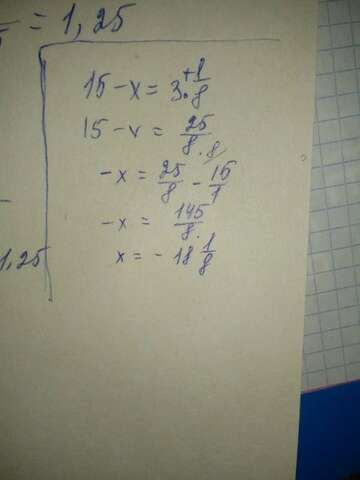 = 1,25
15 - x = 3 1/8
15 - x = 25/8
-x = 25/8 - 15/1
-x = 145/8
x = - 18 1/8
1,25